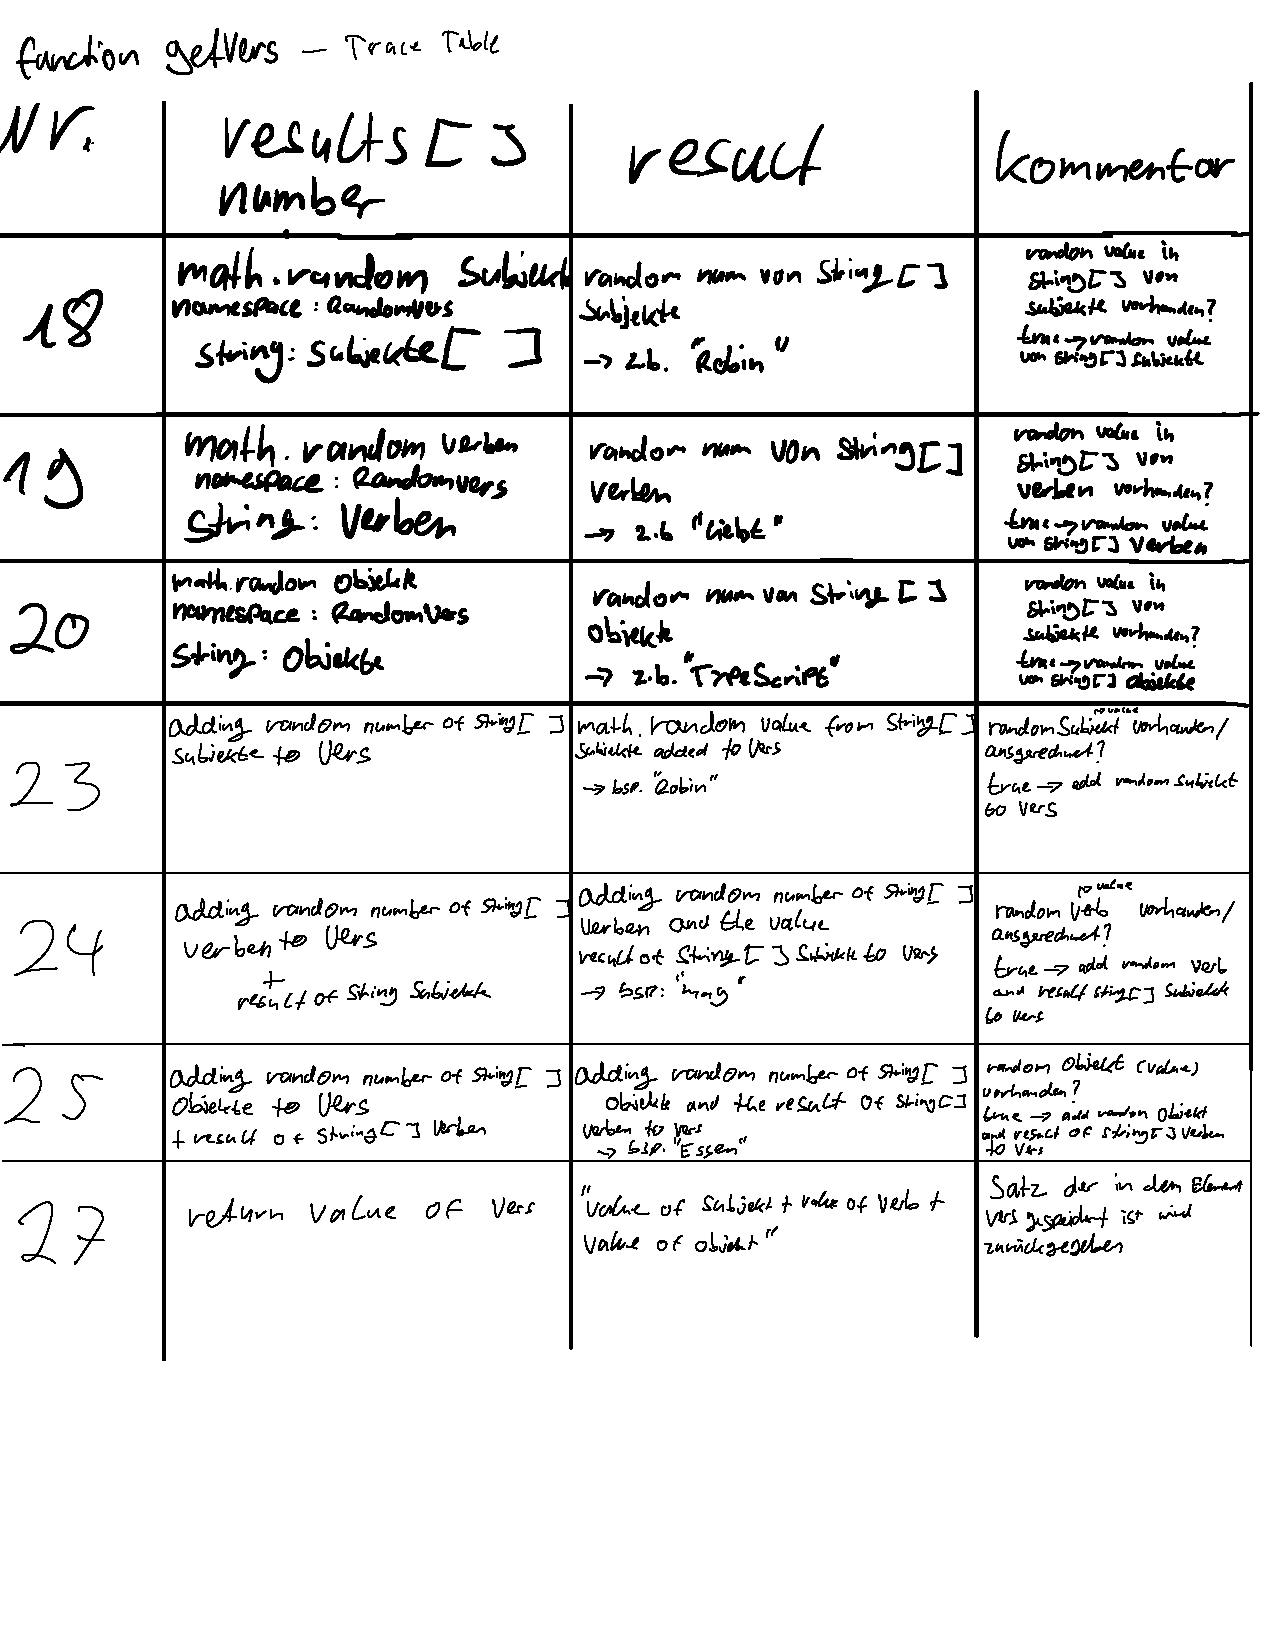 function getVers – Trace Table
Nr.
results[ ]
number
result
kommentar
18
math.random Subjekt
namespace: RandomVers
String: Subjekte[ ]
random num von String[ ]
Subjekte
-> z.b. "Robin"
random value in
String[ ] von
subjekte vorhanden?
true -> random value
von String[ ] Subjekte
19
math.random verben
namespace: Randomvers
String: Verben
random num von String[ ]
Verben
-> z.b "liebt"
random value in
String[ ] von
verben vorhanden?
true -> random value
von String[ ] Verben
20
math.random Objekte
namespace: RandomVers
String: Objekte
random num von String[ ]
Objekte
-> z.b. "TypeScript"
random value in
String[ ] von
subjekte vorhanden?
true -> random value
von String[ ] Objekte
23
adding random number of String[ ]
Subjekte to Vers
math.random value from String[ ]
Subjekte added to Vers
-> bsp. "Robin"
-> value
random Subjekt vorhanden/
ausgerechnet?
true -> add random subjekt
to Vers
24
adding random number of String[ ]
verben to Vers
+
result of String Subjekte
adding random number of String[ ]
Verben and the value
result of String[ ] Subjekte to Vers
-> bsp: "mag"
-> value
random Verb vorhanden/
ausgerechnet?
true -> add random verb
and result sting[ ] Subjekte
to Vers
25
adding random number of String[ ]
Objekte to Vers
+ result of String[ ] Verben
adding random number of String[ ]
Objekte and the result of String[ ]
verben to vers
-> bsp. "Essen"
random Objekt (value)
vorhanden?
true -> add random Objekt
and result of String[ ] Verben
to Vers
27
return value of Vers
"value of subjekt + value of Verb +
value of objekt"
Satz der in dem Element
Vers gespeichert ist wird
zurückgegeben